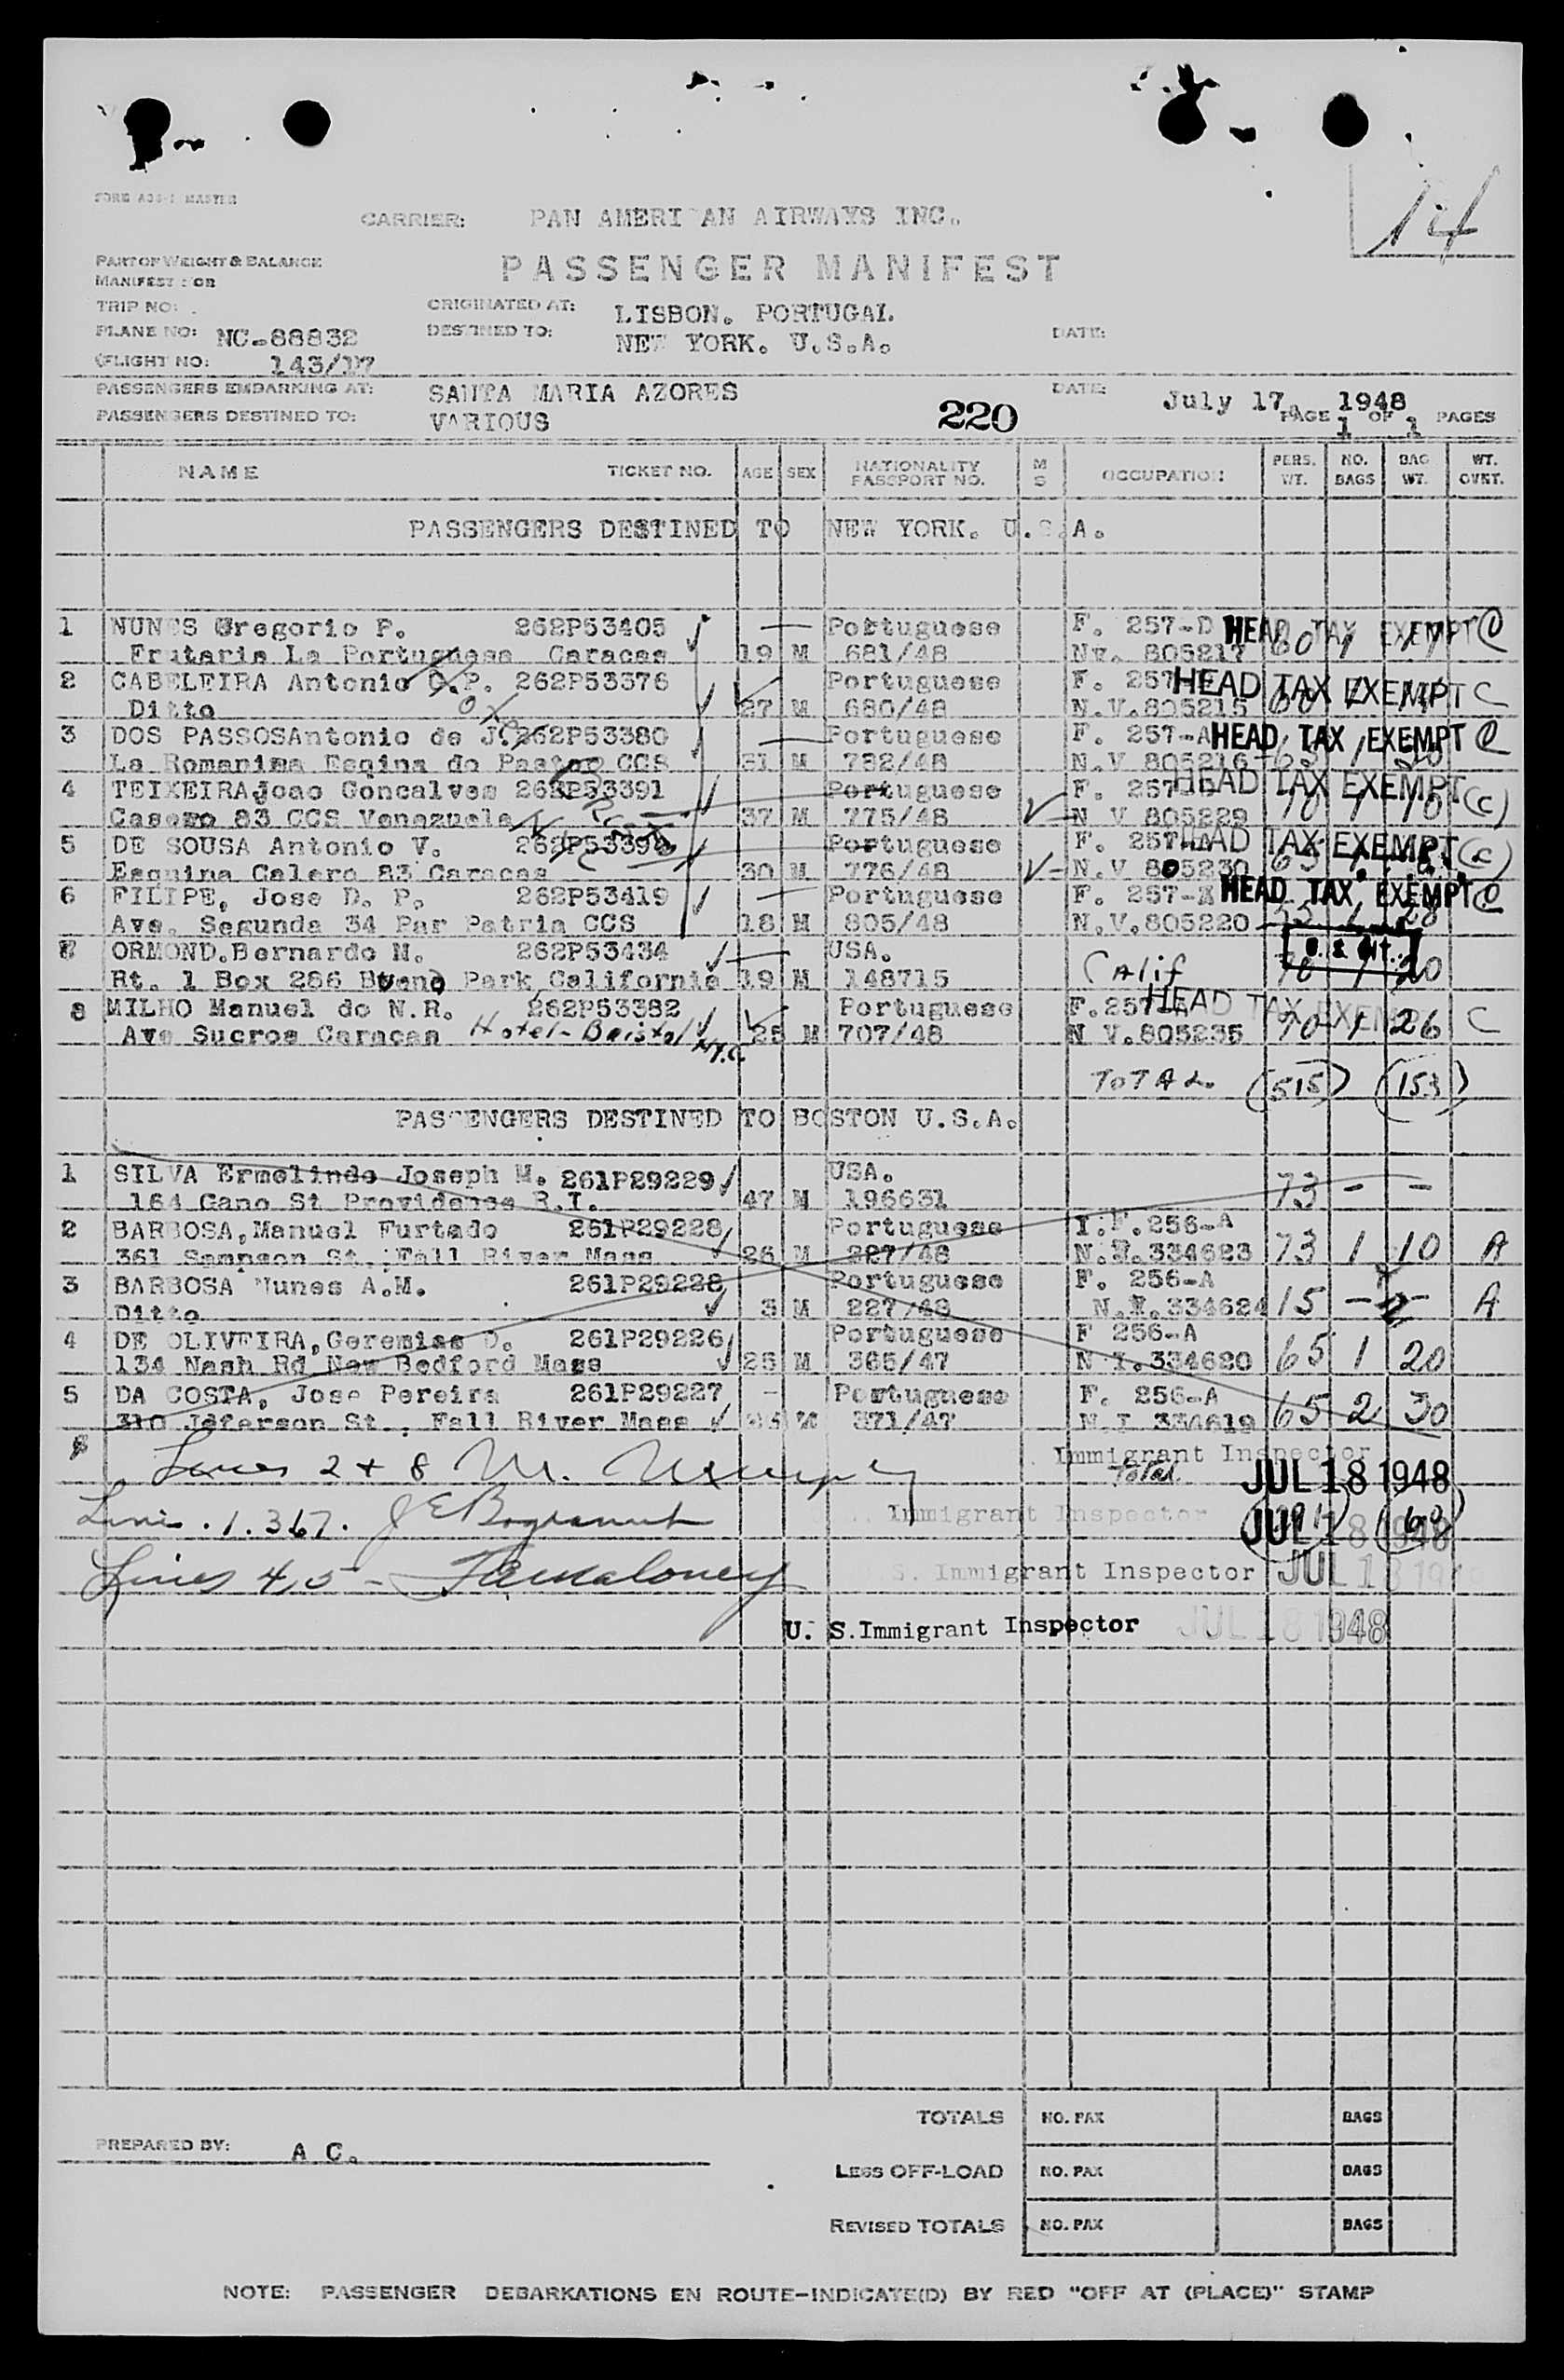 14
CARRIER: PAN AMERI AN AIRWAYS INC.
PART OF WEIGHT & BALANCE
MANIFEST FOR
PASSENGER MANIFEST
TRIP NO:
ORIGINATED AT: LISBON. PORTUGAL.
PLANE NO: NC-88832
DESTINED TO: NEW YORK. U.S.A.
DATE:
FLIGHT NO: 143/17
PASSENGERS EMBARKING AT: SANTA MARIA AZORES
DATE: July 17, 1948
PASSENGERS DESTINED TO: VARIOUS
220
PAGE 1 OF 1 PAGES
NAME TICKET NO. AGE SEX NATIONALITY PASSPORT NO. M S OCCUPATION PERS. WT. NO. BAGS BAG WT. WT. OVRT.
PASSENGERS DESTINED TO NEW YORK. U.S.A.
1 NUNES Gregorio P. 262P53405 Portuguese F. 257-D HEAD TAX EXEMPT C
Frutaria La Portuguesa Caracas 19 M 681/48 Nv. 805217 60 1 17
2 CABELEIRA Antonio G.P. 262P53376 Portuguese F. 257 HEAD TAX EXEMPT C
Ditto 27 M 680/48 N.V.805215
3 DOS PASSOSAntonio de J. 262P53380 Portuguese F. 257-A HEAD TAX EXEMPT C
La Romanina Esqina do Pastor CCS 31 M 792/48 N.V 805216 65 1
4 TEIXEIRAJoao Goncalves 262P53391 Portuguese F. 257 HEAD TAX EXEMPT (C)
CCS Venezuela 37 M 775/48 N V 805229 70 1 10
5 DE SOUSA Antonio V. Portuguese F. 257 HEAD TAX EXEMPT (C)
Esquina Calero 83 Caracas 30 M 776/48 N.V 805230 65 1
6 FILIPE, Jose D. P. 262P53419 Portuguese F. 257-A HEAD TAX EXEMPT C
Ave. Segunda 34 Par Patria CCS 18 M 805/48 N.V.805220 55 1 28
7 ORMOND.Bernardo M. 262P53434 USA.
Rt. 1 Box 286 Buena Park California 19 M 148715 Calif 70 1 20
8 MILHO Manuel do N.R. 262P53382 Portuguese F.257 HEAD TAX EXEMPT C
Ave Sucros Caracas Hotel-Bristol N.Y.C. 25 M 707/48 N V.805235 70 1 26
TOTAL (515) (153)
PASSENGERS DESTINED TO BOSTON U.S.A.
1 SILVA Ermelindo Joseph M. 261P29229 USA.
164 Gano St Providence R.I. 47 M 196631 73 - -
2 BARBOSA,Manuel Furtado 261P29228 Portuguese I.F.256-A
361 Sampson St., Fall River Mass 26 M 227/48 N.I.334623 73 1 10 A
3 BARBOSA Nunes A.M. 261P29228 Portuguese F. 256-A
Ditto 3 M 227/48 N.I.334624 15 A
4 DE OLIVEIRA,Geremias D. 261P29226 Portuguese F 256-A
134 Nash Rd New Bedford Mass 25 M 365/47 N I.334620 65 1 20
5 DA COSTA, Jose Pereira 261P29227 Portuguese F. 256-A
310 Jeferson St., Fall River Mass M 371/47 N.I 334619 65 2 30
Lines 2 + 8 Immigrant Inspector
Total JUL 18 1948
Lines . 1.367. Immigrant Inspector JUL 18 1948 291 (60)
Lines 4,5 - S. Immigrant Inspector JUL 18 1948
U. S.Immigrant Inspector JUL 18 1948
TOTALS NO. PAX BAGS
PREPARED BY: A C.
LESS OFF-LOAD NO. PAX BAGS
REVISED TOTALS NO. PAX BAGS
NOTE: PASSENGER DEBARKATIONS EN ROUTE-INDICATE(D) BY RED "OFF AT (PLACE)" STAMP